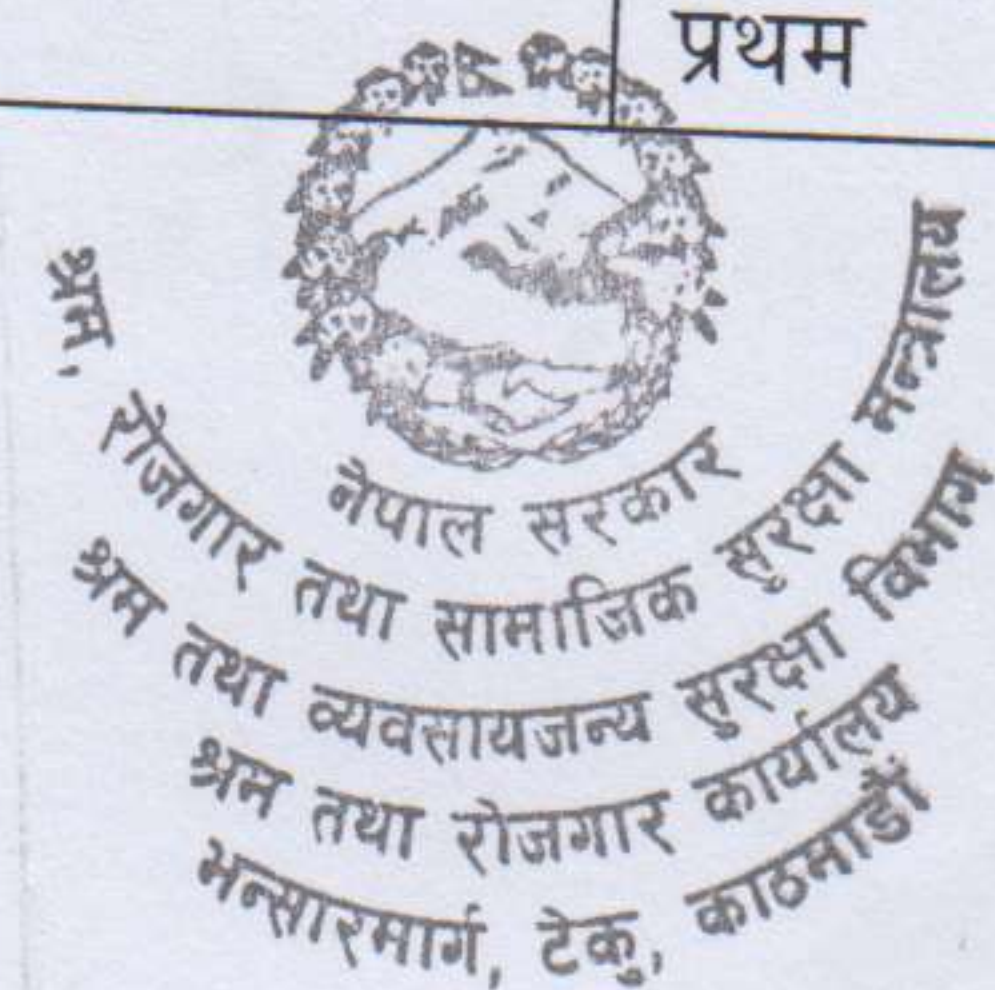 प्रथम
नेपाल सरकार
श्रम, रोजगार तथा सामाजिक सुरक्षा मन्त्रालय
श्रम तथा व्यवसायजन्य सुरक्षा विभाग
श्रम तथा रोजगार कार्यालय
भन्सारमार्ग, टेकु, काठमाडौं